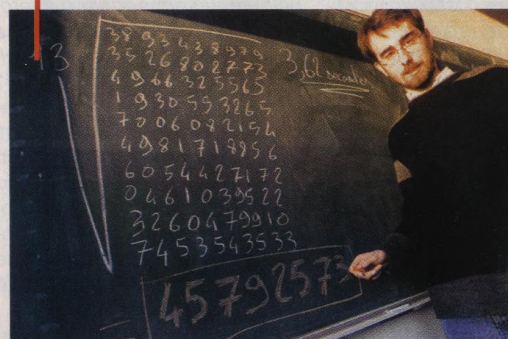 13
3893438979
3526802773
4966325565
1930553265
7006082154
4981718856
6054427172
0461039522
3260479910
7453543533
3,62 secondes
45792573